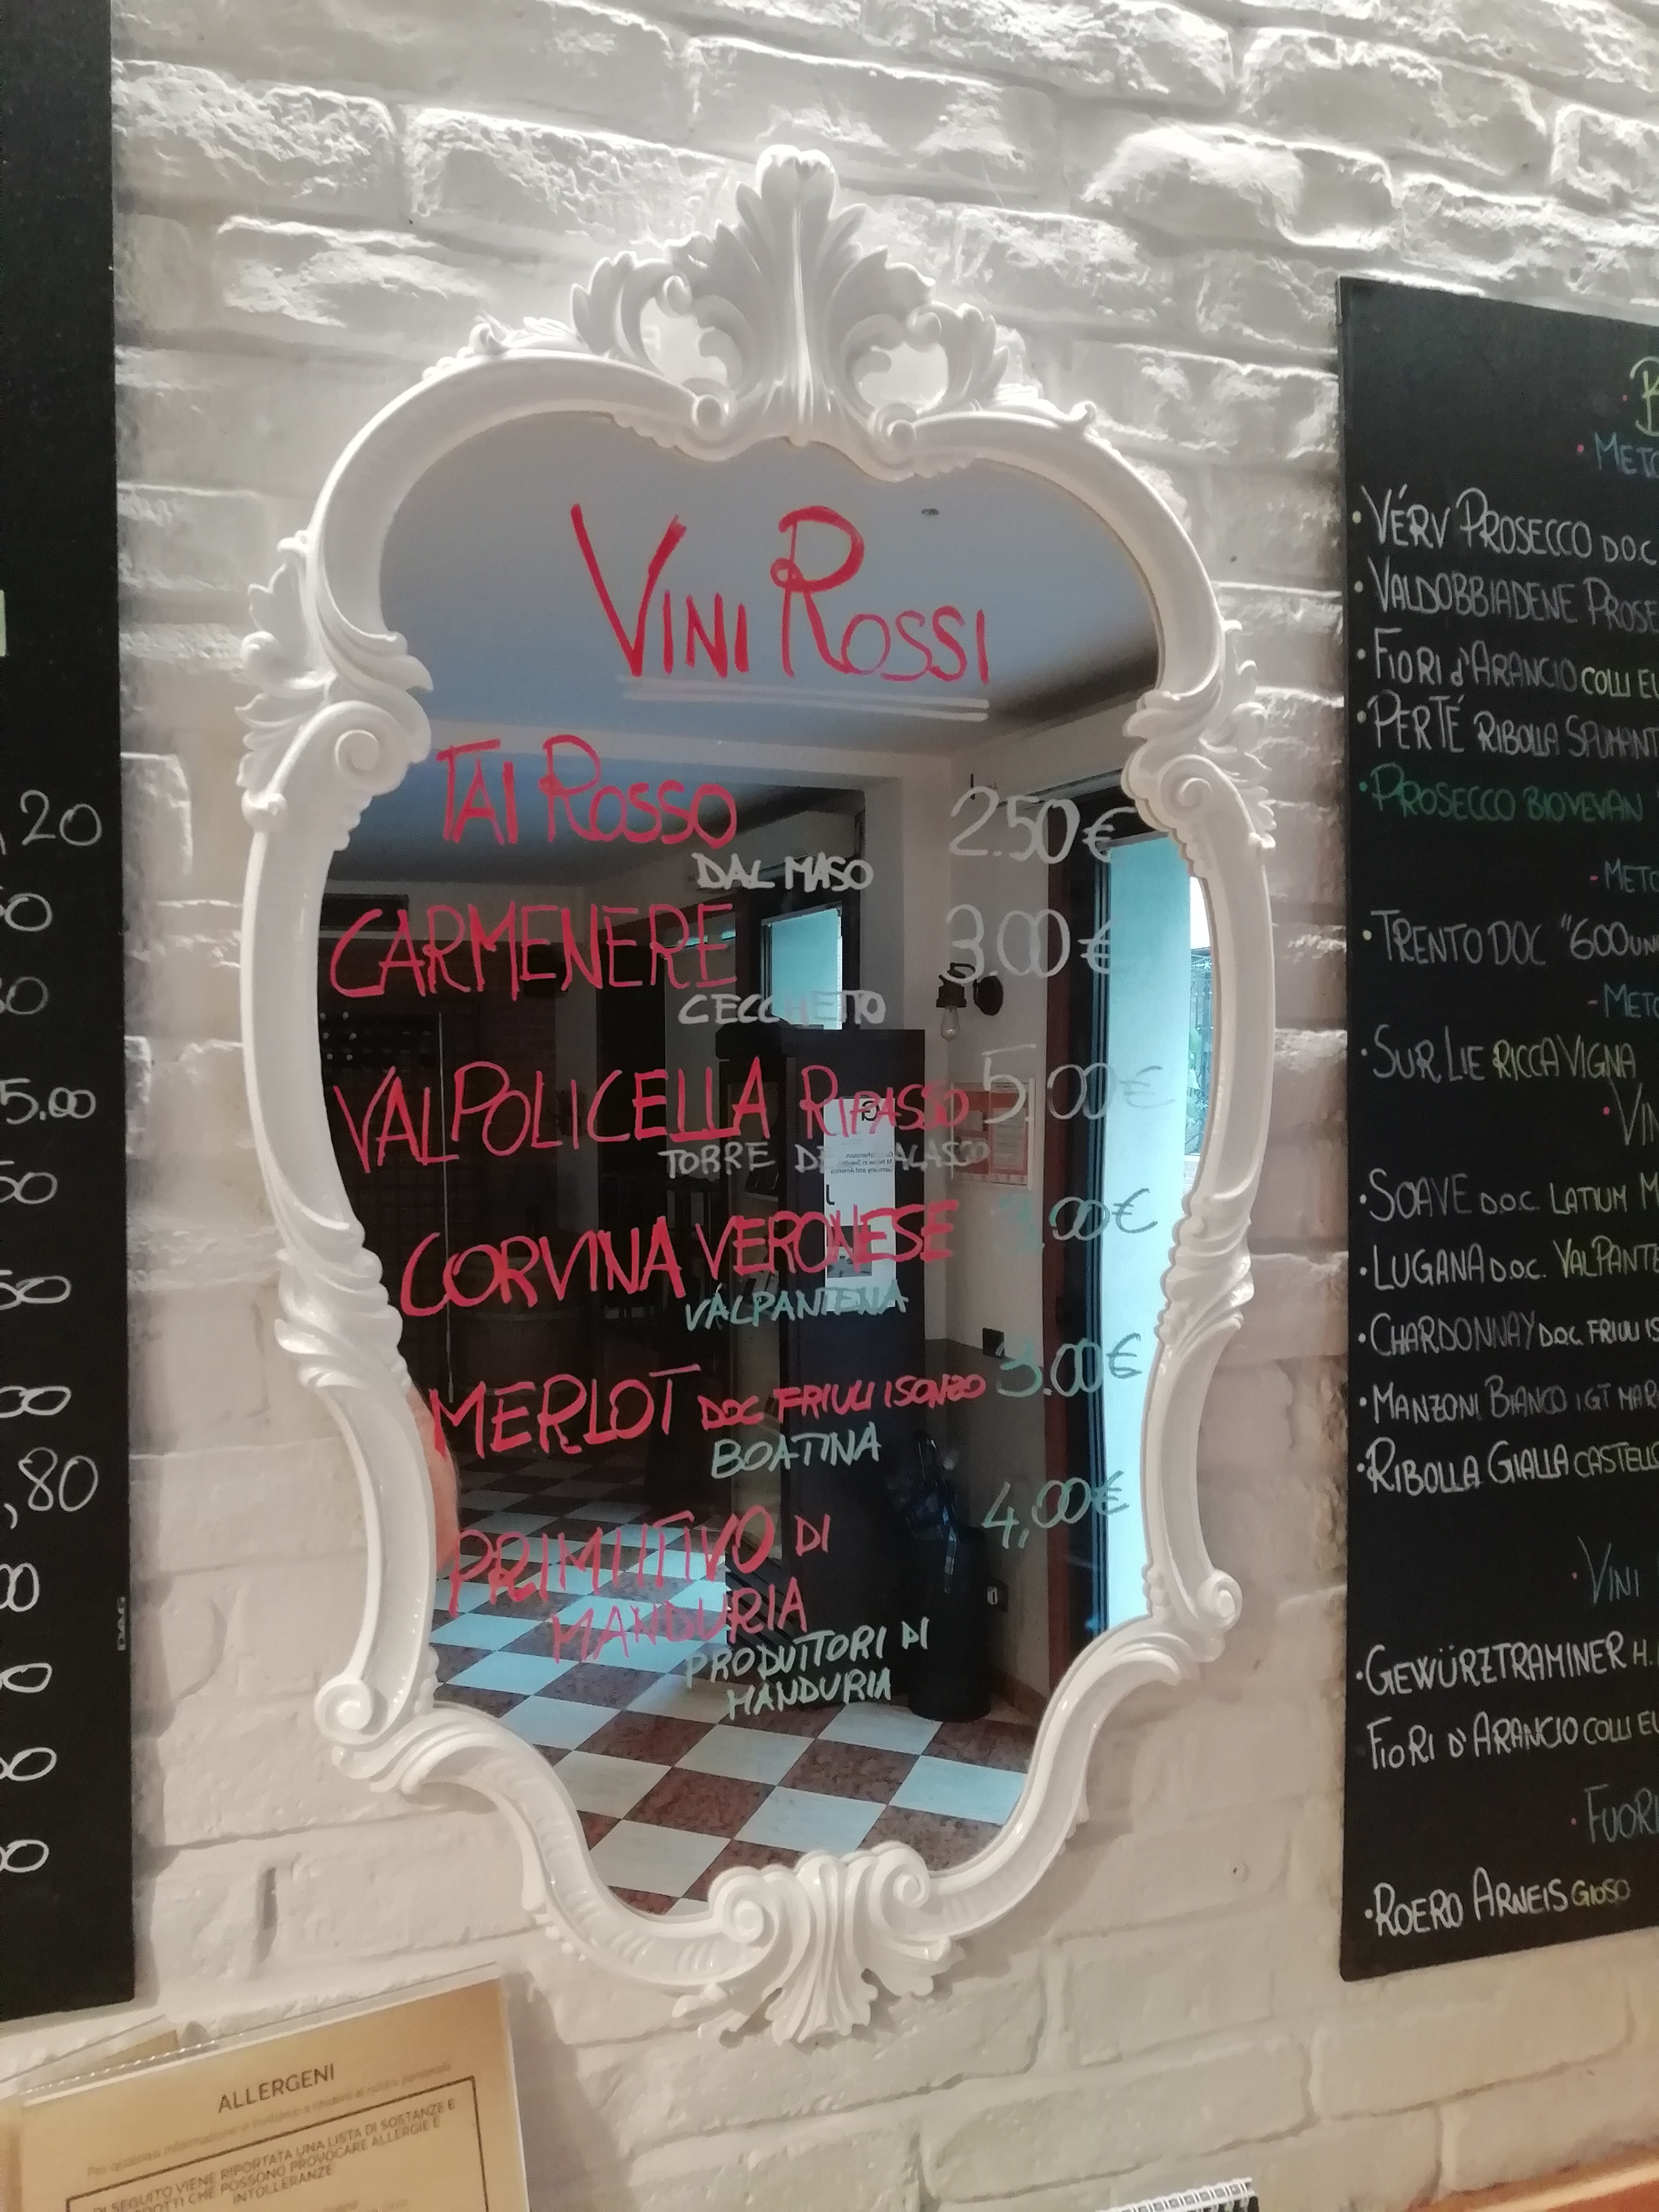 VINI ROSSI
TAI ROSSO 2.50€
DAL MASO
CARMENERE 3.00€
CECCHETTO
VALPOLICELLA RIPASSO 5,00€
TORRE
CORVINA VERONESE 3,00€
VALPANTENA
MERLOT DOC FRIULI ISONZO 3.00€
BOATINA
PRIMITIVO DI 4,00€
MANDURIA
PRODUTTORI DI
MANDURIA
20
5.00
50
50
,80
00
DAG
VÉRV PROSECCO D.O.C
VALDOBBIADENE PROSE
FIORI d'ARANCIO COLLI EU
PERTÉ RIBOLLA SPUMANT
PROSECCO BIO VEVAN
-METO
TRENTO DOC "600UN
-METO
SUR LIE RICCA VIGNA
VIN
SOAVE D.O.C. LATIUM M
LUGANA D.O.C. VALPANTE
CHARDONNAY D.O.C. FRIULI IS
MANZONI BIANCO IGT MAR
RIBOLLA GIALLA CASTELLO
VINI
GEWÜRZTRAMINER H.
FIORI D'ARANCIO COLLI EU
FUORI
ROERO ARNEIS GIOSO
ALLERGENI
Per qualsiasi informazione si invitano a chiedere al nostro personale
DI SEGUITO VIENE RIPORTATA UNA LISTA DI SOSTANZE E
PRODOTTI CHE POSSONO PROVOCARE ALLERGIE E
INTOLLERANZE